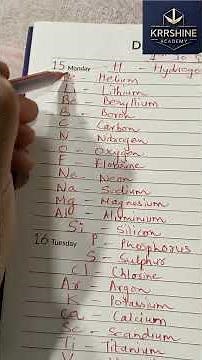 KRRSHINE
ACADEMY
D
15 Monday H - Hydroge
- Helium
- Lithium
Be - Beryllium
B - Boron
C - Carbon
N - Nitrogen
O - Oxygen
F - Flourine
Ne - Neon
Na - Sodium
Mg - Magnesium
Al - Aluminium
Si - Silicon
16 Tuesday P - Phosphorus
S - Sulphur
Cl - Chlorine
Ar - Argon
K - Potassium
Ca - Calcium
Sc - Scandium
Ti - Titanium